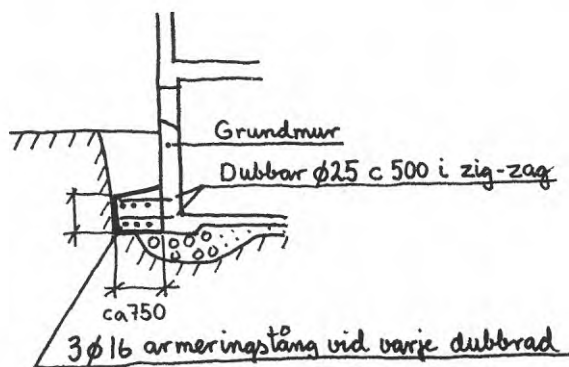 Grundmur
Dubbar ϕ25 c 500 i zig-zag
ca 750
3ϕ16 armeringstång vid varje dubbrad